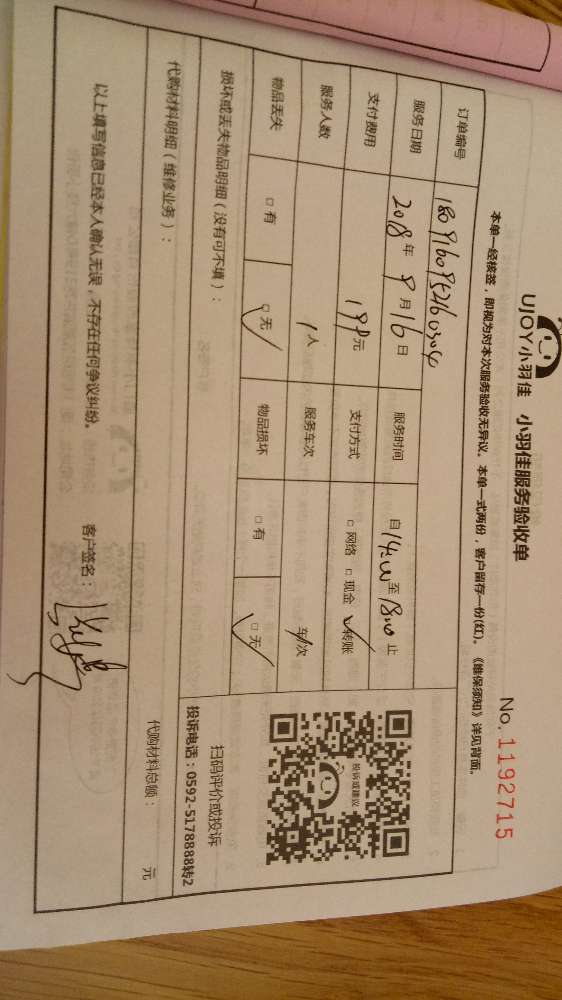 UJOY小羽佳 小羽佳服务验收单
No. 1192715
本单一经核签，即视为对本次服务验收无异议。本单一式两份，客户留存一份(红)。《维保须知》详见背面。
订单编号
服务日期 2018年 9月16日 服务时间 自 14:00 至 18:00 止
支付费用 199元 支付方式 □网络 □现金 ☑转账
服务人数 1人 服务车次 车/次
物品丢失 □有 ☑无 物品损坏 □有 ☑无
投诉或建议
扫码评价或投诉
投诉电话：0592-5178888转2
损坏或丢失物品明细（没有可不填）：
代购材料明细（维修业务）：
代购材料总额： 元
以上填写信息已经本人确认无误，不存在任何争议纠纷。 客户签名：